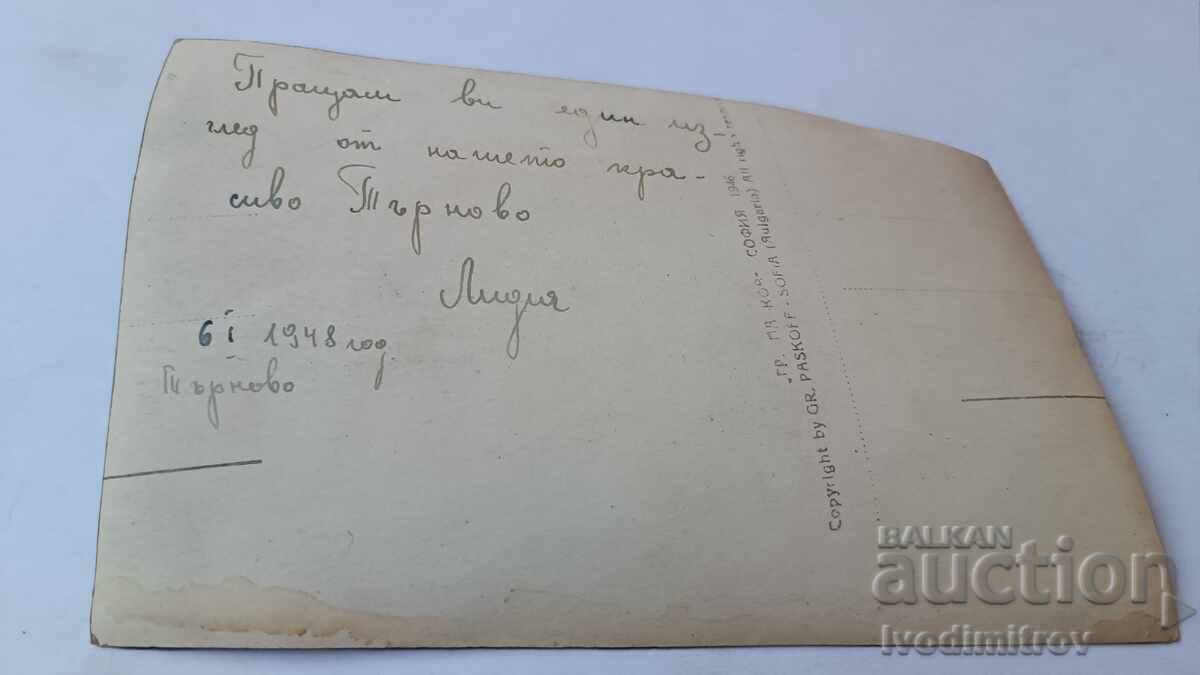 Пращам ви един из-
глед от нашето кра-
сиво Търново
Лидия
6 I 1948 год.
Търново
ГР. ПАСКОВ - СОФИЯ 1946
Copyright by GR. PASKOFF - SOFIA (Bulgaria) All rights
BALKAN
auction
Ivodimitrov